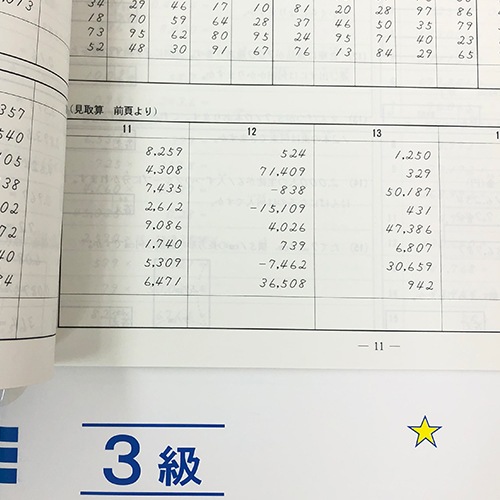 34 29 46 17 10 81 20 28 97 86
18 70 59 64 28 37 46 50 85
73 95 62 80 95 24 95 71 40 23
52 48 30 91 67 76 13 84 29 65
(見取算 前頁より)
11 12 13
8,259 524 1,250
4,308 71,409 329
7,435 -838 50,187
2,612 -15,109 431
9,086 4,026 47,386
1,740 739 6,807
5,309 -7,462 30,659
6,471 36,508 942
357
540
105
38
02
72
40
84
— 11 —
3級